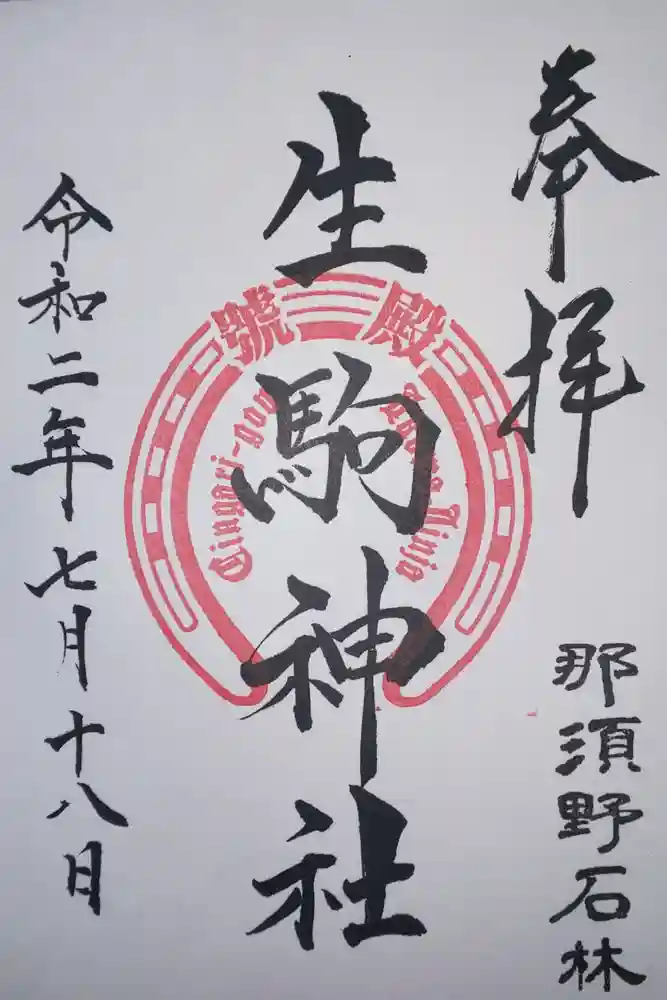 奉拝
那須野石林
生駒神社
殿號
Cingari-gou
令和二年七月十八日